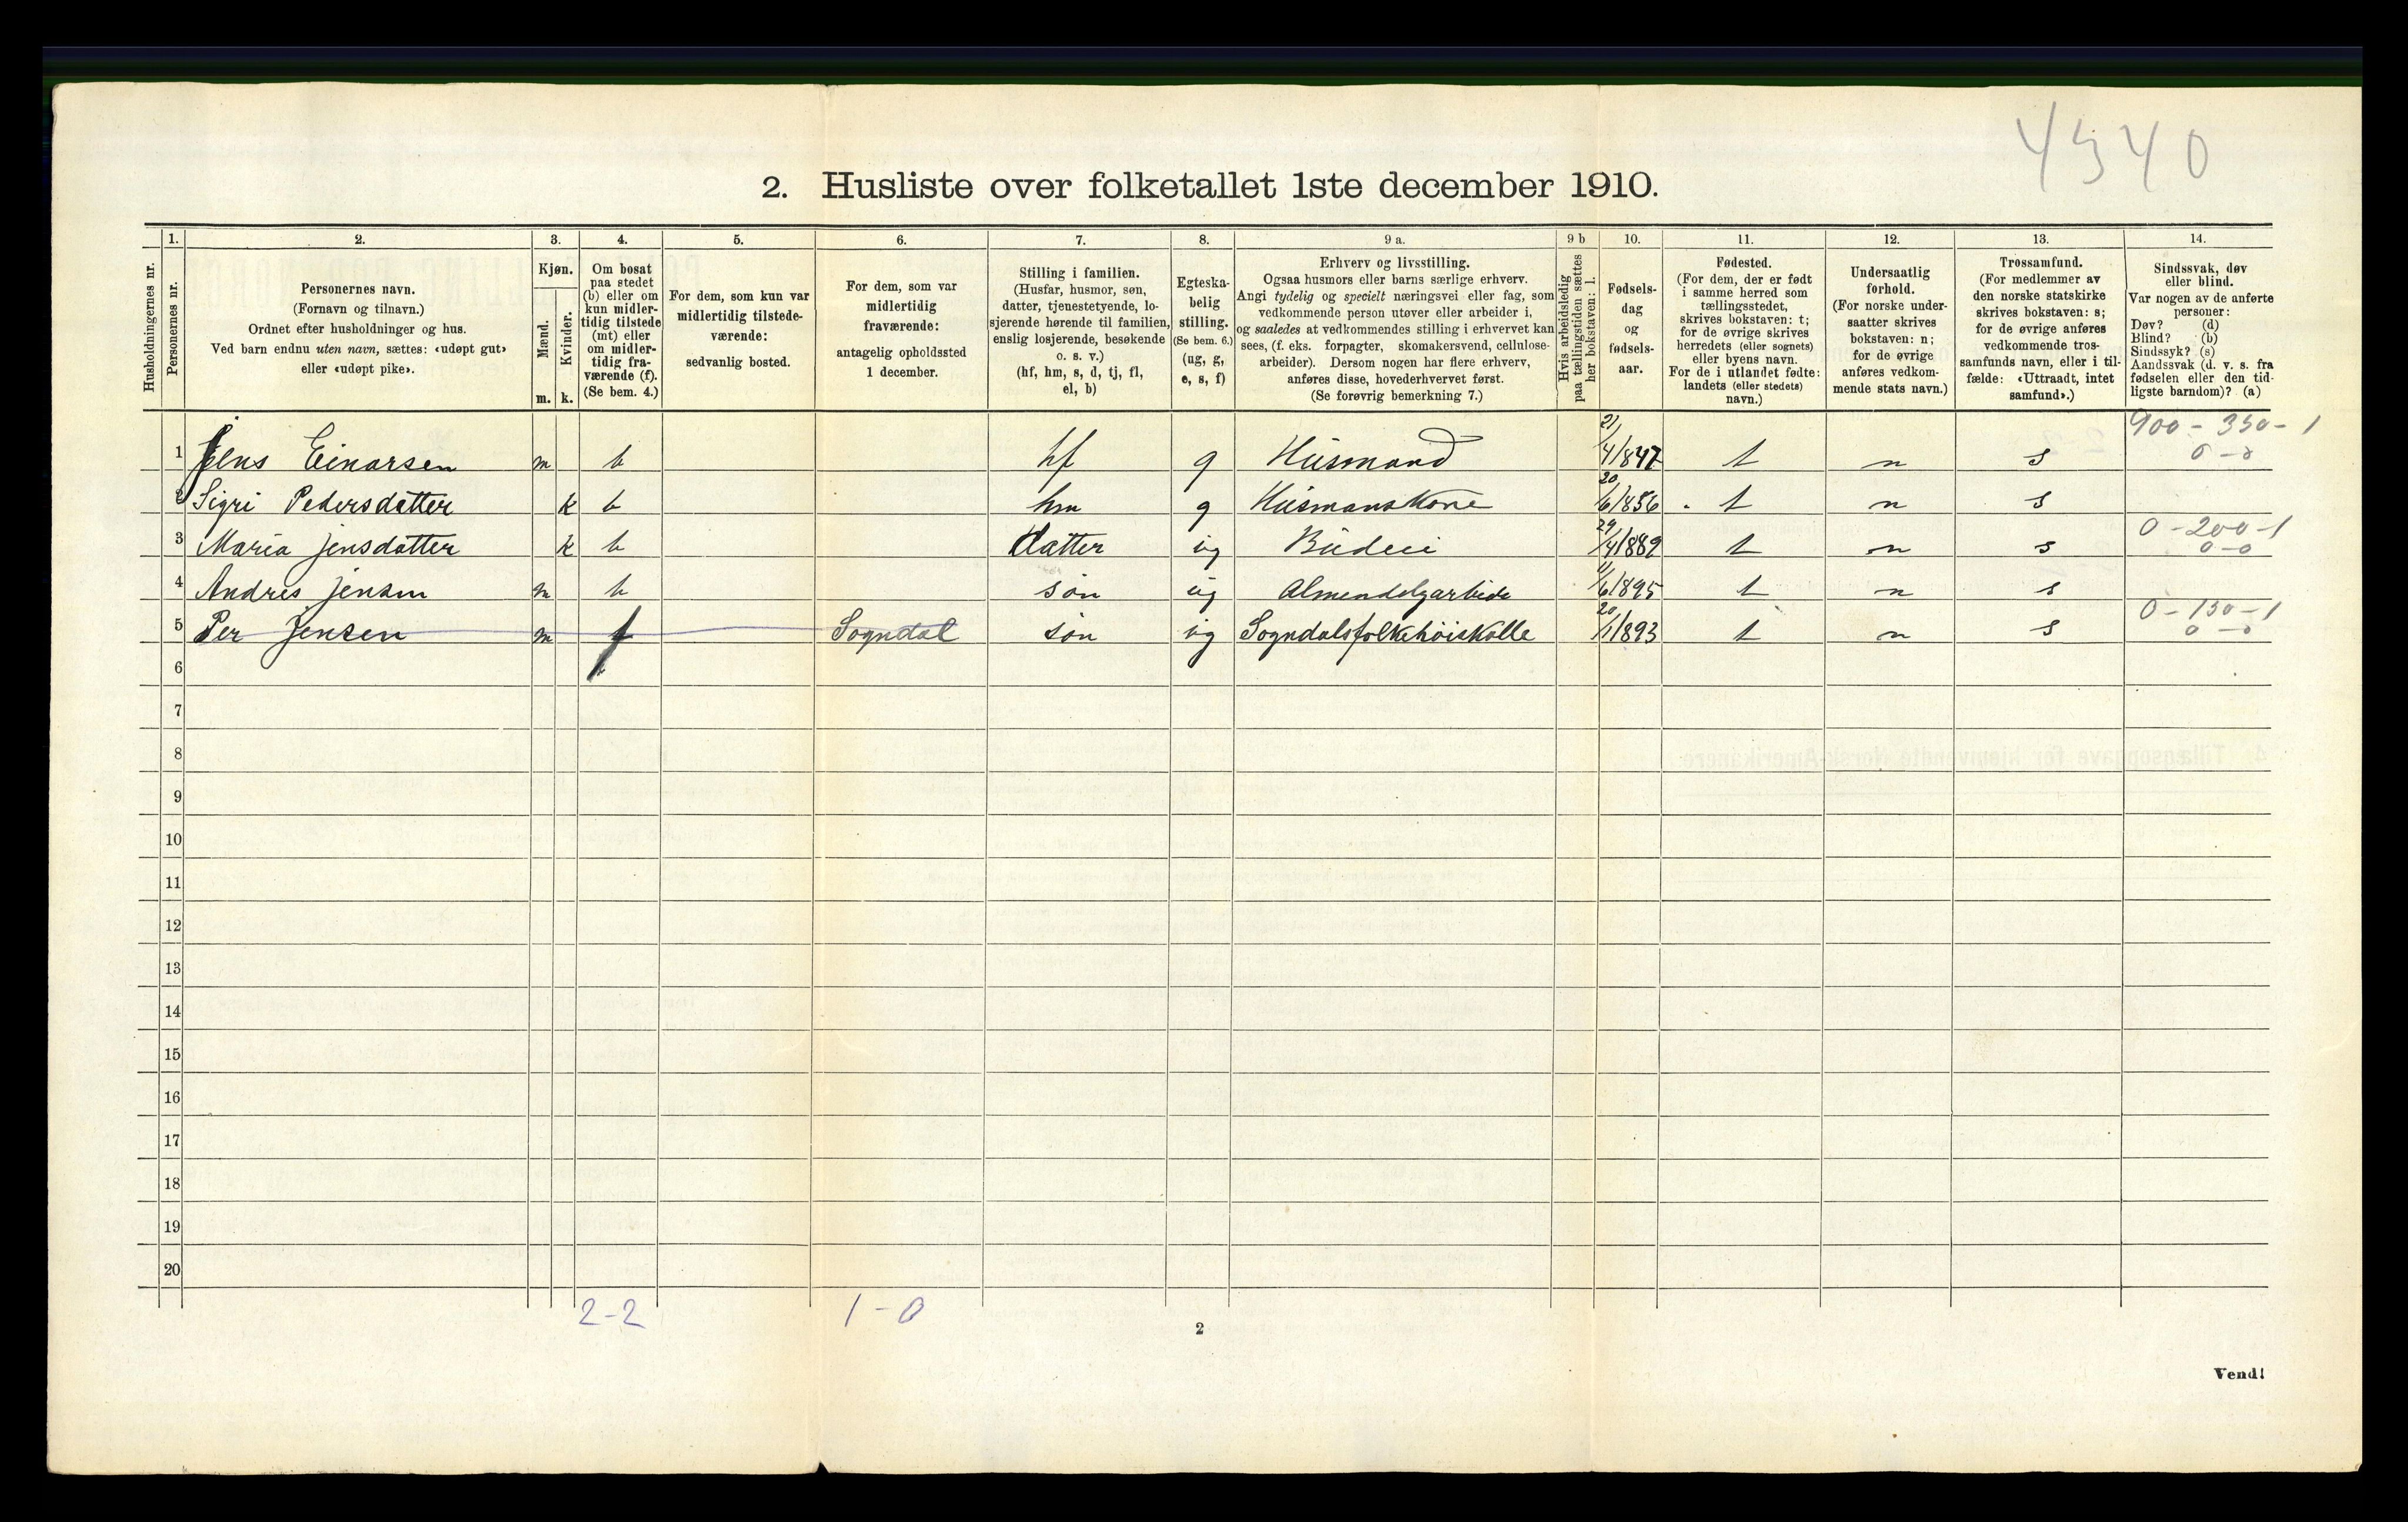 4540
2. Husliste over folketallet 1ste december 1910.
Husholdningernes nr.
1. Personernes nr.
2. Personernes navn.
(Fornavn og tilnavn.)
Ordnet efter husholdninger og hus.
Ved barn endnu uten navn, sættes: «udøpt gut»
eller «udøpt pike».
3. Kjøn.
Mænd. Kvinder.
m. k.
4. Om bosat
paa stedet
(b) eller om
kun midler-
tidig tilstede
(mt) eller
om midler-
tidig fra-
værende (f).
(Se bem. 4.)
5. For dem, som kun var
midlertidig tilstede-
værende:
sedvanlig bosted.
6. For dem, som var
midlertidig
fraværende:
antagelig opholdssted
1 december.
7. Stilling i familien.
(Husfar, husmor, søn,
datter, tjenestetyende, lo-
sjerende hørende til familien,
enslig losjerende, besøkende
o. s. v.)
(hf, hm, s, d, tj, fl,
el, b)
8. Egteska-
belig
stilling.
(Se bem. 6.)
(ug, g,
e, s, f)
9 a. Erhverv og livsstilling.
Ogsaa husmors eller barns særlige erhverv.
Angi tydelig og specielt næringsvei eller fag, som
vedkommende person utøver eller arbeider i,
og saaledes at vedkommendes stilling i erhvervet kan
sees, (f. eks. forpagter, skomakersvend, cellulose-
arbeider). Dersom nogen har flere erhverv,
anføres disse, hovederhvervet først.
(Se forøvrig bemerkning 7.)
9 b Hvis arbeidsledig
paa tællingstiden sættes
her bokstaven: l.
10. Fødsels-
dag
og
fødsels-
aar.
11. Fødested.
(For dem, der er født
i samme herred som
tællingsstedet,
skrives bokstaven: t;
for de øvrige skrives
herredets (eller sognets)
eller byens navn.
For de i utlandet fødte:
landets (eller stedets)
navn.)
12. Undersaatlig
forhold.
(For norske under-
saatter skrives
bokstaven: n;
for de øvrige
anføres vedkom-
mende stats navn.)
13. Trossamfund.
(For medlemmer av
den norske statskirke
skrives bokstaven: s;
for de øvrige anføres
vedkommende tros-
samfunds navn, eller i til-
fælde: «Uttraadt, intet
samfund».)
14. Sindssvak, døv
eller blind.
Var nogen av de anførte
personer:
Døv? (d)
Blind? (b)
Sindssyk? (s)
Aandssvak (d. v. s. fra
fødselen eller den tid-
ligste barndom)? (a)
1 Jens Einarsen m b hf g Husmand 21/4/847 t n s 900 - 350 - 1
0 - 0
2 Sigri Pedersdatter k b hm g Husmanskone 20/6/856 t n s
3 Maria Jensdatter k b datter ug Budeie 29/4/889 t n s 0 - 200 - 1
0 - 0
4 Andres Jensen m b søn ug Almendelgarbide 11/6/895 t n s
5 Per Jensen m f Sogndal søn ug Sogndalsfolkehøiskolle 20/1/893 t n s 0 - 150 - 1
0 - 0
6
7
8
9
10
11
12
13
14
15
16
17
18
19
20
2-2 1-0
2
Vend!